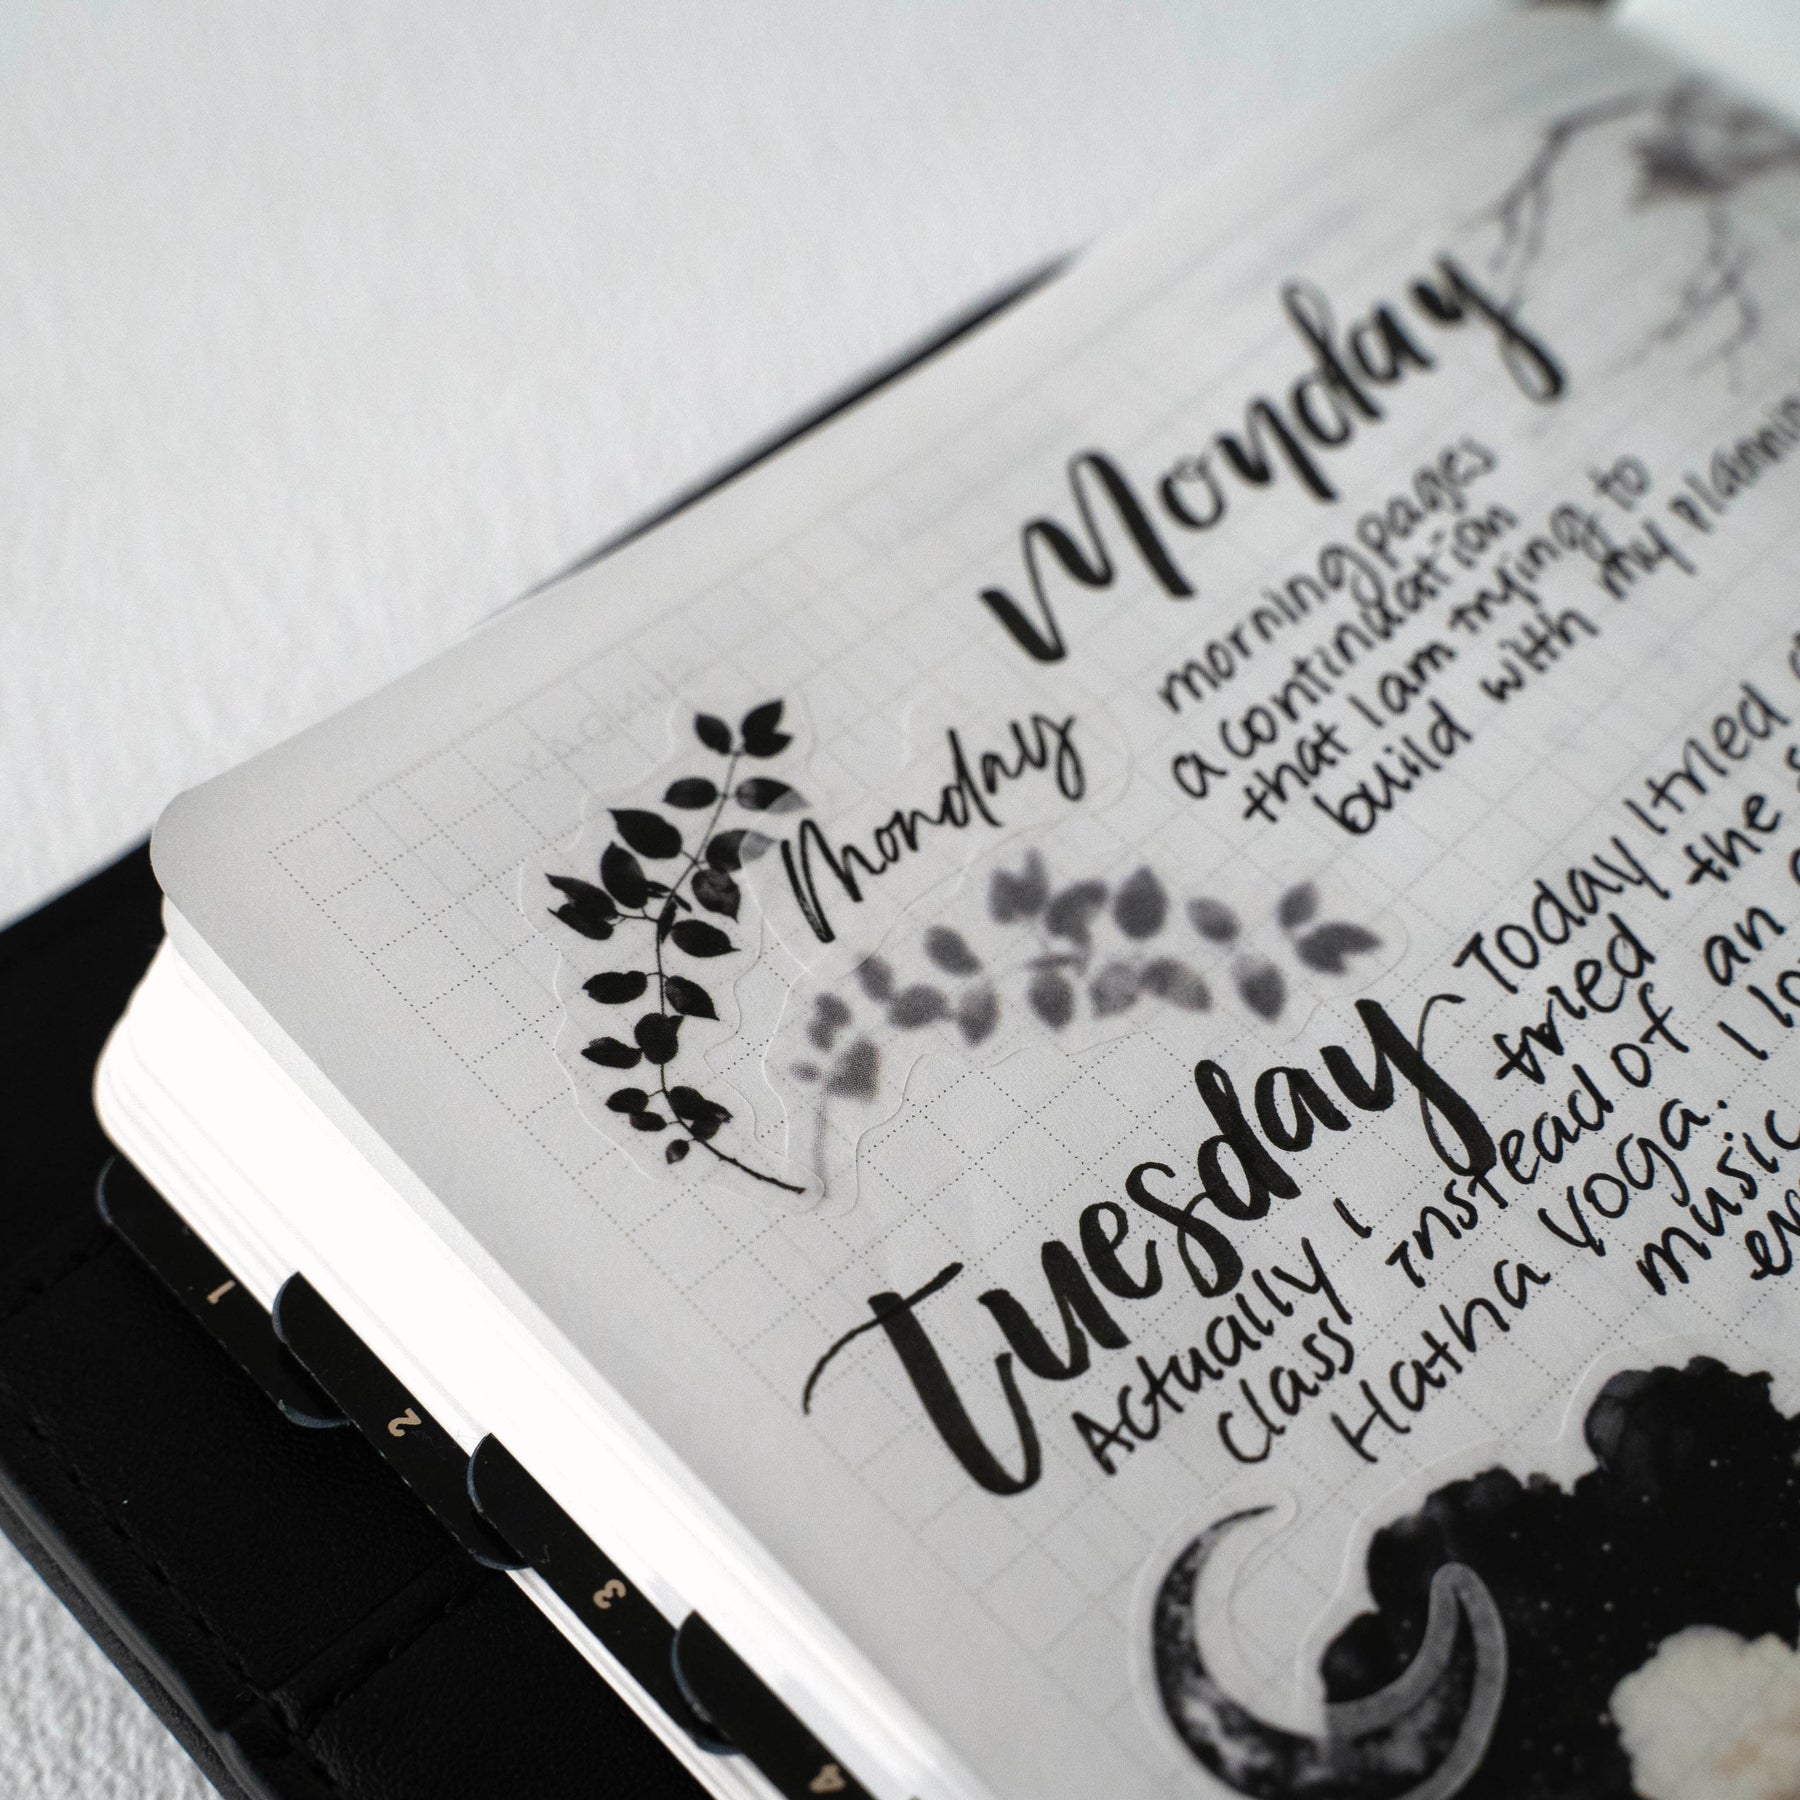 Monday
Monday
morning pages
a continuation
that I am trying to
build with my plannin
Tuesday
Today I tried
Actually I tried the
class instead of an
Hatha yoga. I lo
music
1
2
3
4